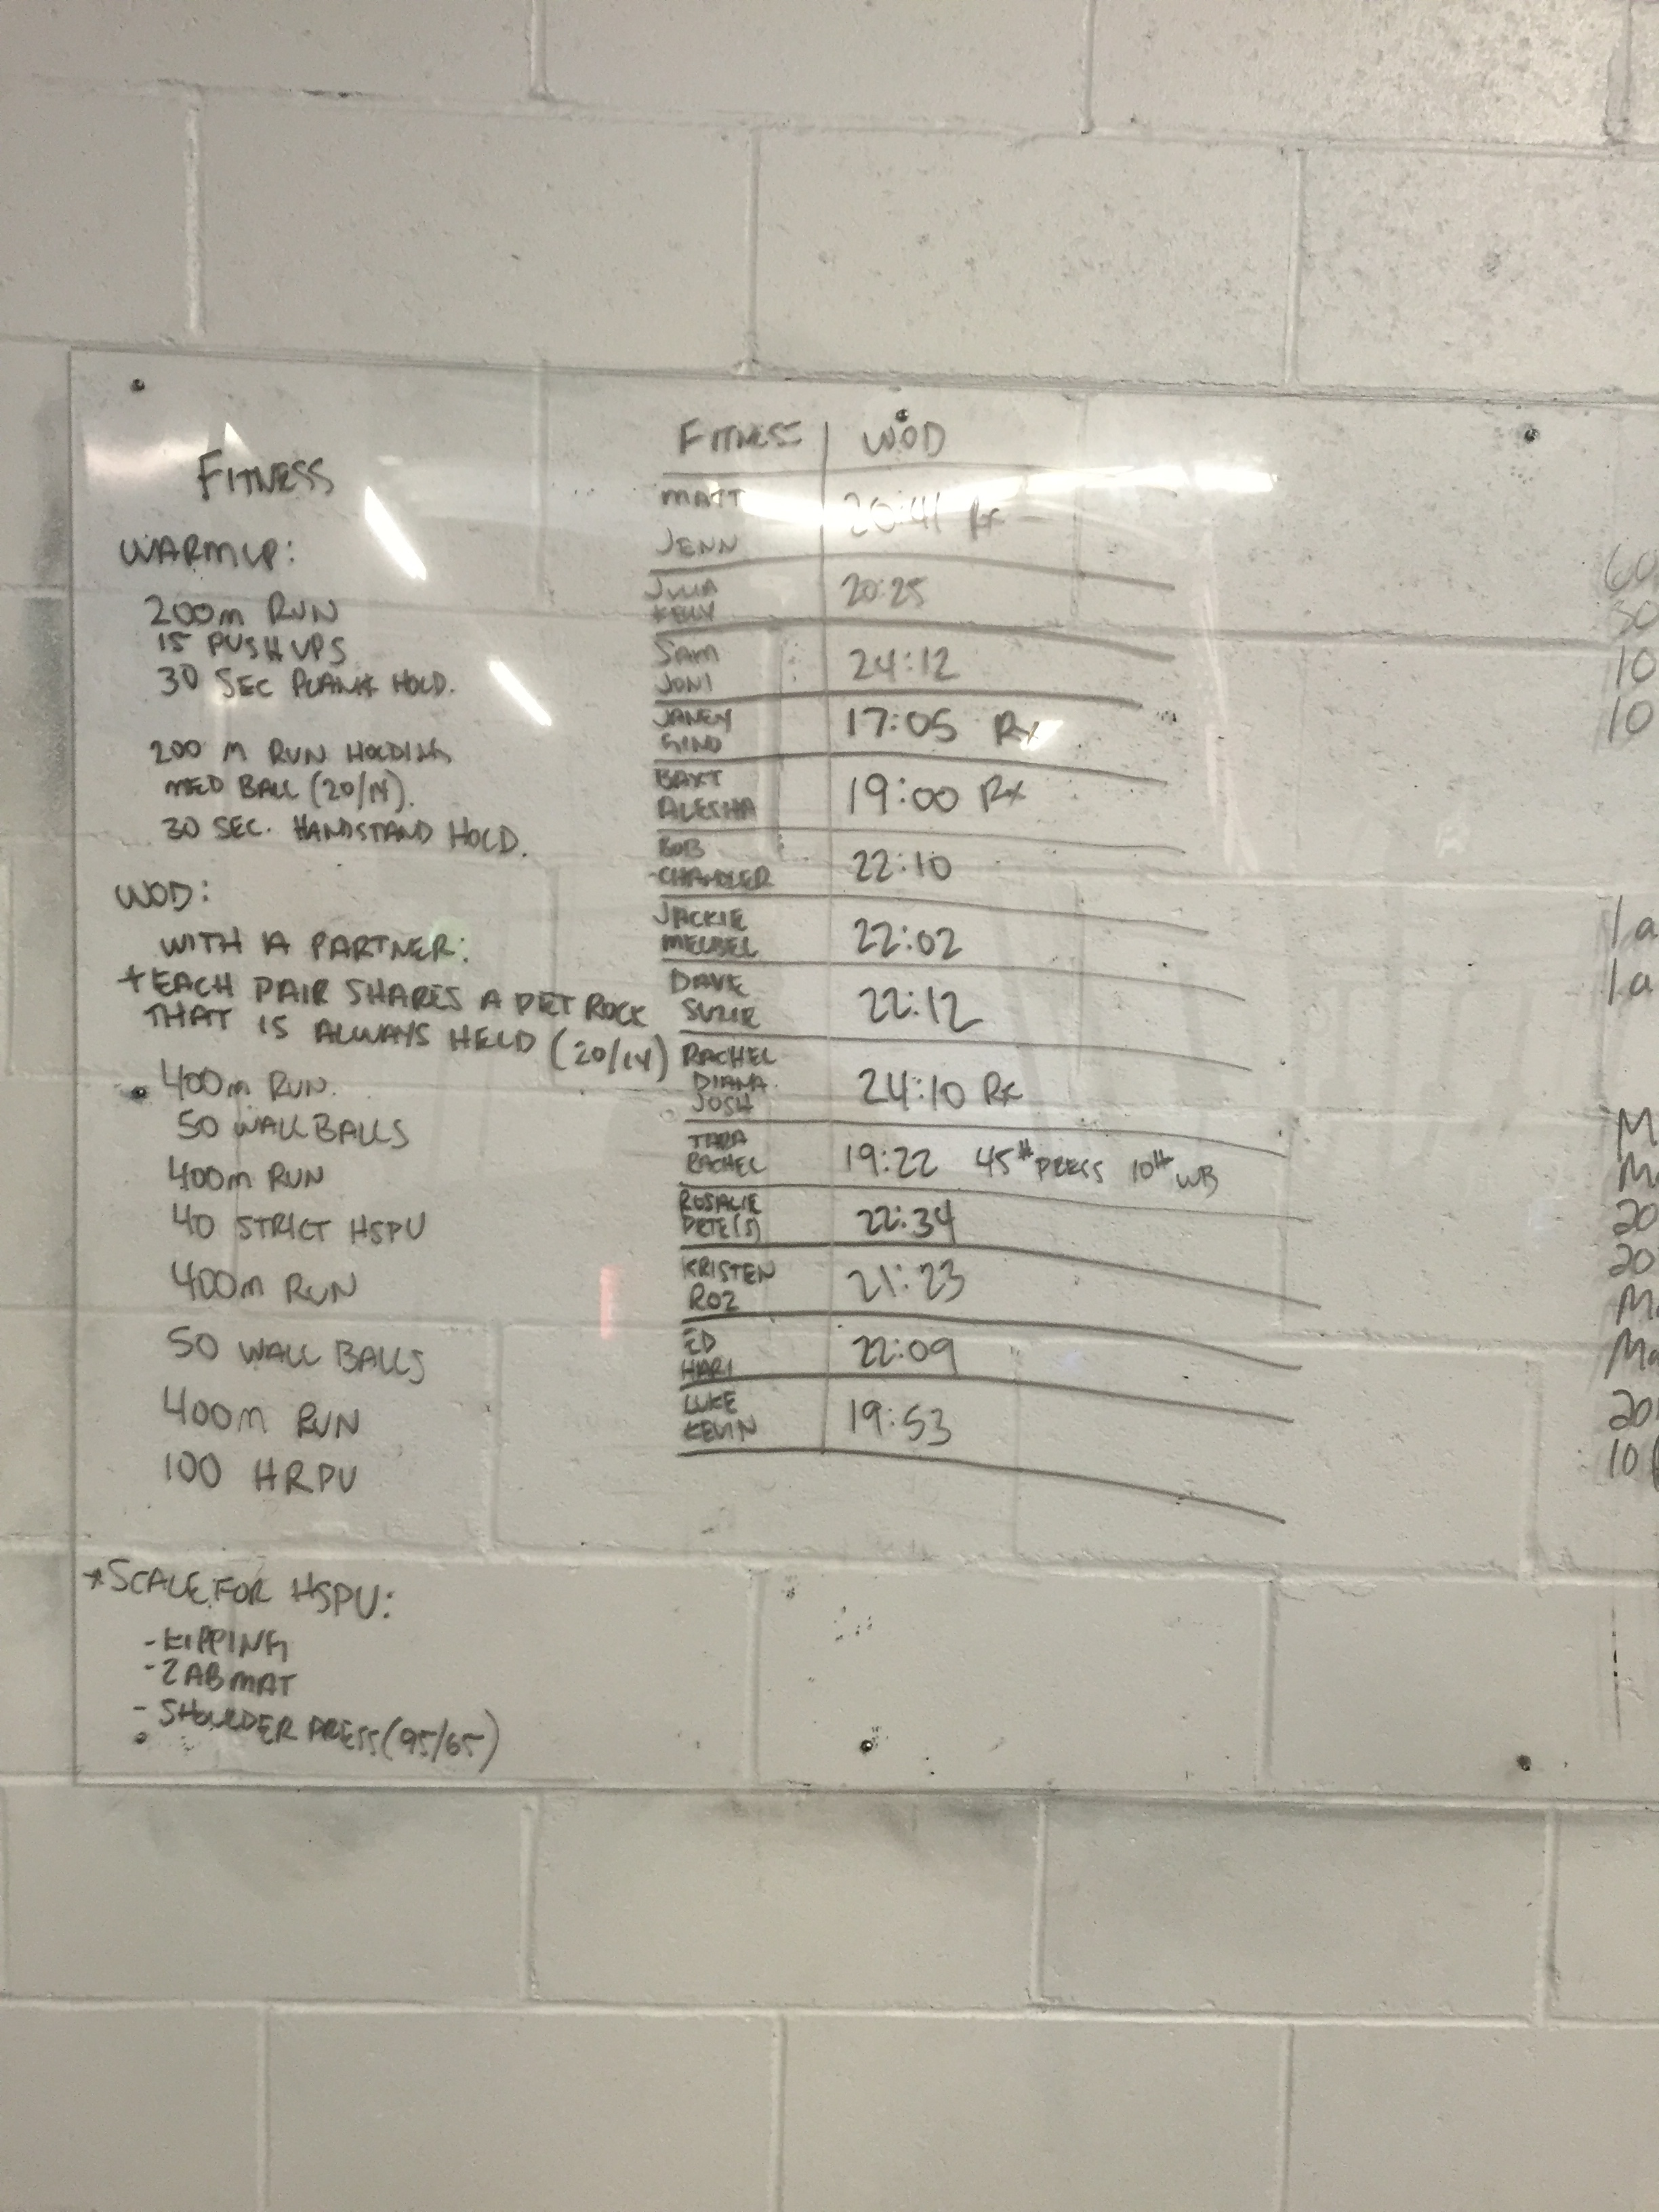 FITNESS
WARMUP:
200m RUN
15 PUSH UPS
30 SEC PLANK HOLD.
200 M RUN HOLDING
MED BALL (20/14).
30 SEC. HANDSTAND HOLD.
WOD:
WITH A PARTNER:
*EACH PAIR SHARES A PET ROCK
THAT IS ALWAYS HELD (20/14)
400m RUN.
50 WALL BALLS
400m RUN
40 STRICT HSPU
400m RUN
50 WALL BALLS
400m RUN
100 HRPU
*SCALE FOR HSPU:
-KIPPING
-2 ABMAT
-SHOULDER PRESS (95/65)
FITNESS | WOD
MATT
JENN
20:41 Rx
JULIA
KELLY
20:25
SAM
JONI
24:12
JANEY
GINO
17:05 Rx
BAXT
ALESHA
19:00 Rx
BOB
CHANDLER
22:10
JACKIE
22:02
DAVE
SUZIE
22:12
RACHEL
DIANA
JOSH
24:10 Rx
TARA
RACHEL
19:22 45# PRESS 10# WB
ROSALIE
PETE(S)
22:34
KRISTEN
ROZ
21:23
ED
HARI
22:09
LUKE
KEVIN
19:53
10
10
1 a
1 a
M
20
20
10